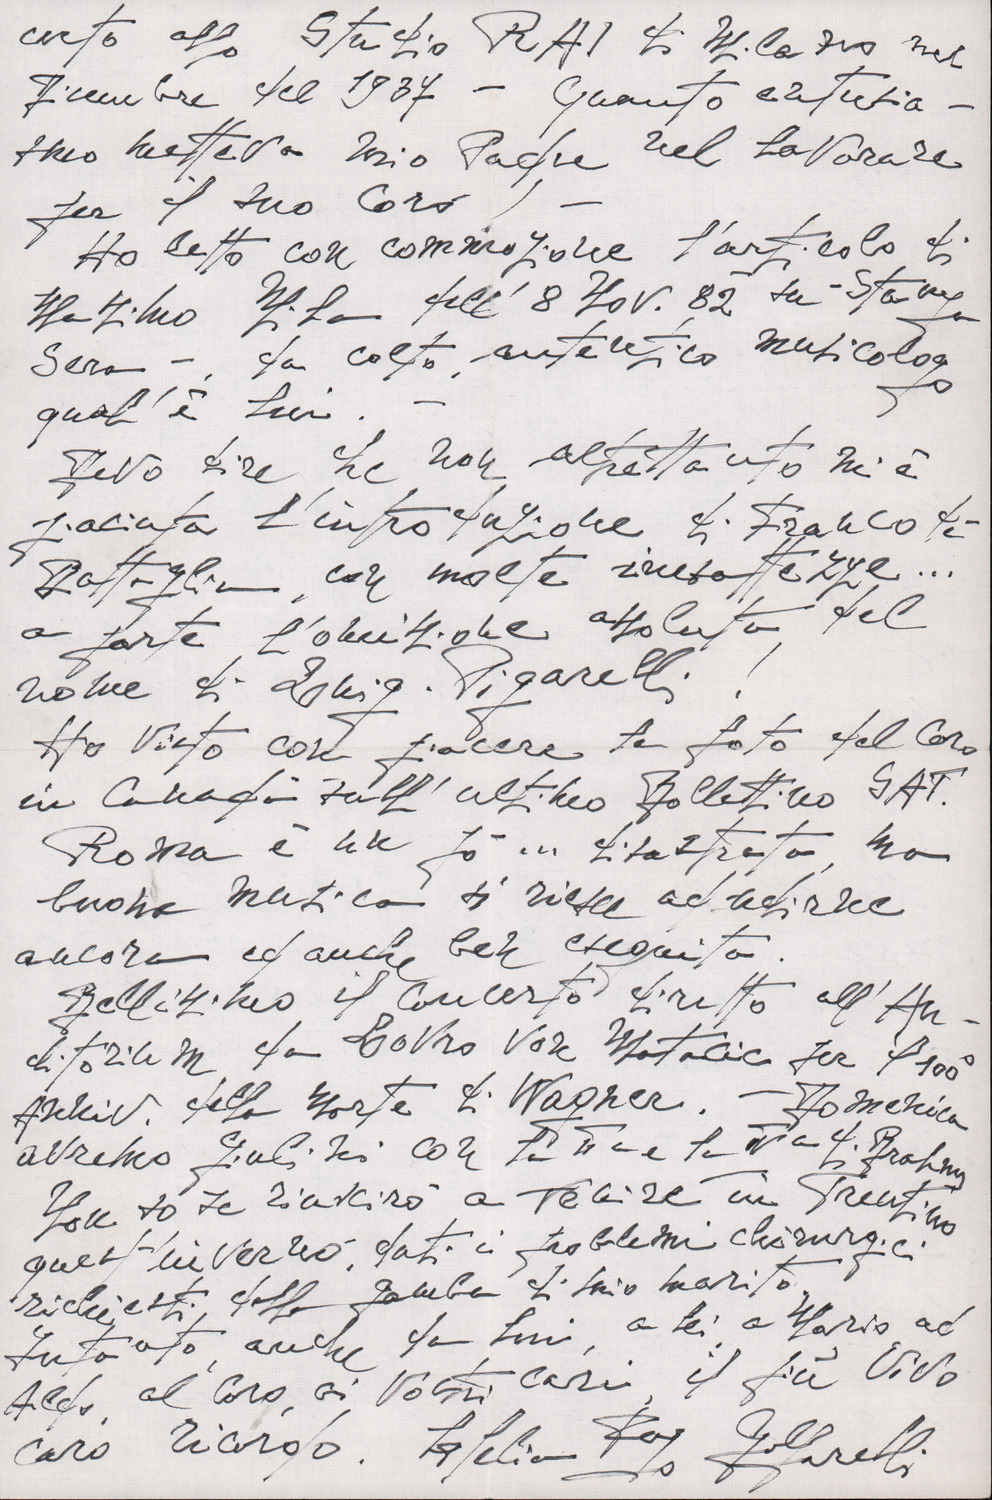 certo allo Studio RAI di Milano nel
Dicembre del 1937 - Quanto entusia-
smo metteva mio Padre nel lavorare
per il suo Coro! -
Ho letto con commozione l'articolo di
Massimo Mila dell' 8 Nov. 82 su "Stampa
Sera -, da colto, autentico musicologo
qual'è lui. -
Devo dire che non altrettanto mi è
piaciuta l'introduzione di Franco de
Battaglia, con molte inesattezze...
a parte l'omissione assoluta del
nome di Luig. Pigarelli!
Ho visto con piacere la foto del Coro
in Canadà sull'ultimo Bollettino SAT.
Roma è un pò... disastrata, ma
buona musica si riesce ad udirne
ancora ed anche ben eseguita.
Bellissimo il Concerto diretto all'Au-
ditorium da Lovro von Matacic per il 100°
Anniv. della Morte di Wagner. - Domenica
avremo Giulini con la IIa e la IVa di Brahms
Non so se riuscirò a venire in Trentino
quest'inverno, dati i problemi chirurgici
richiesti dalla gamba di mio marito.
Intanto, anche da lui, a lei, a Mario, ad
Aldo, al Coro, ai vostri cari, il più vivo
caro ricordo.